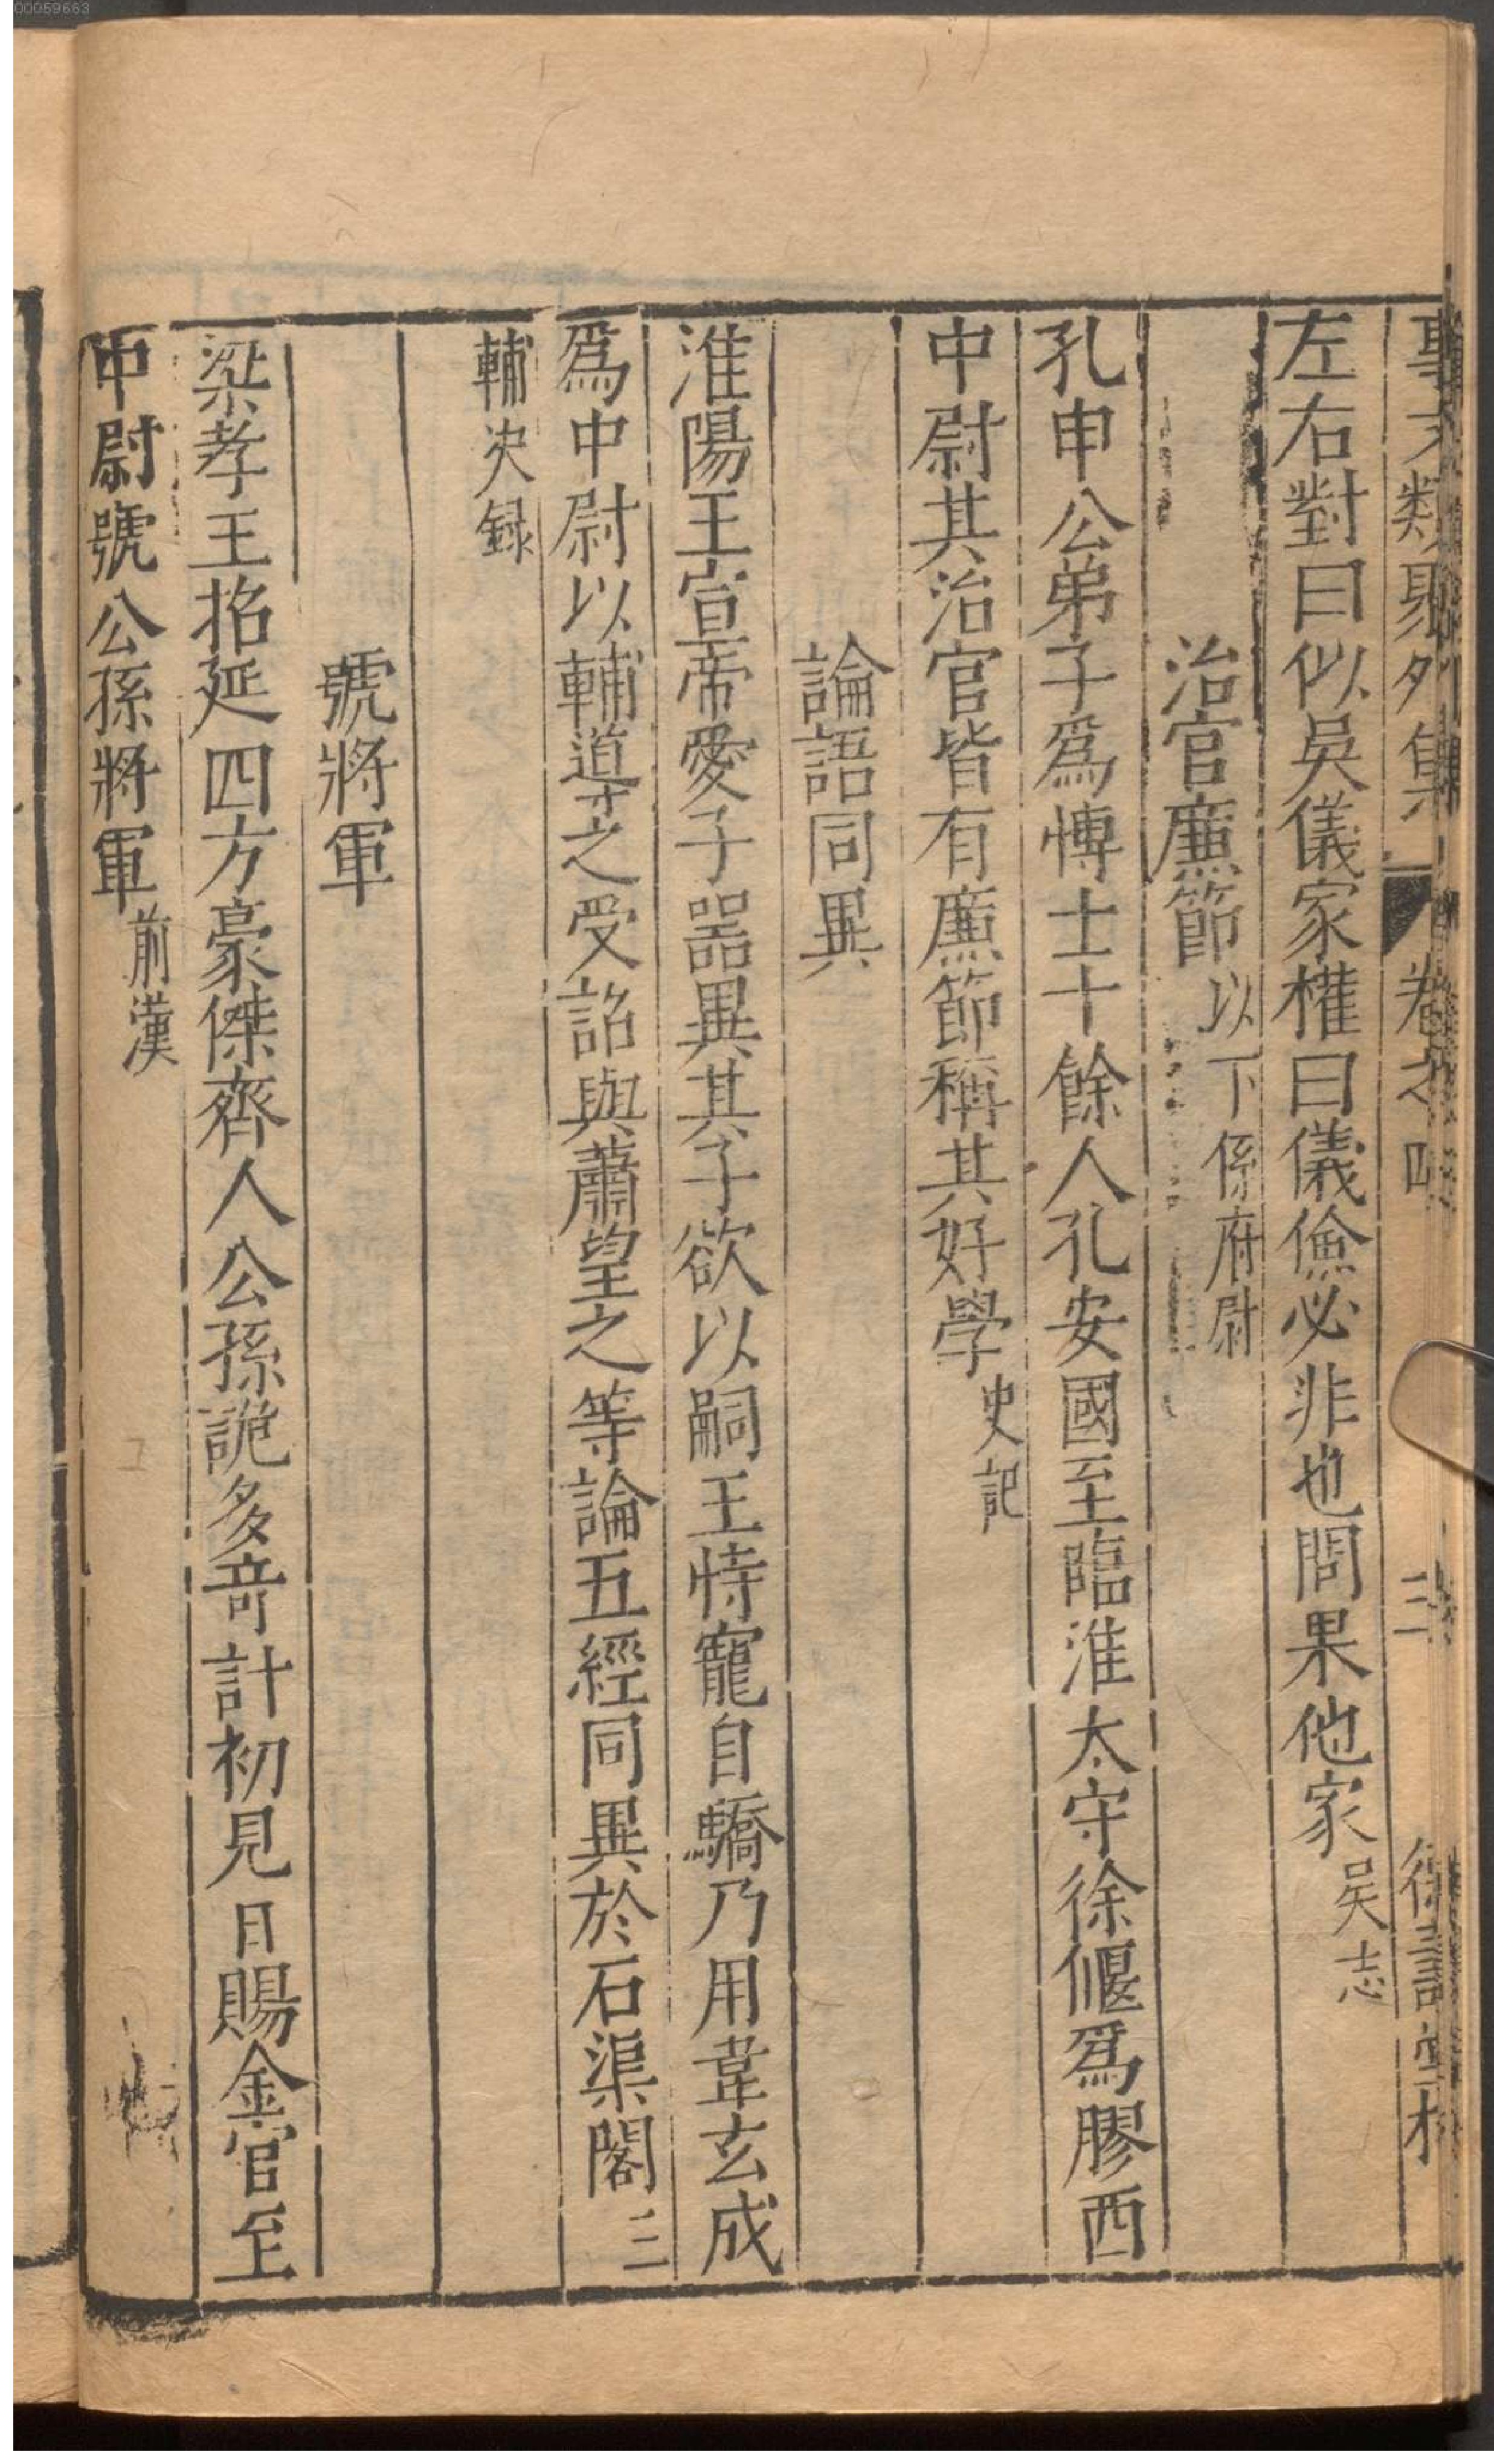 00059663
事文類聚外集 卷之四 三
左右對曰似吳儀家權曰儀儉必非也問果他家吳志
治官廉節以下係府尉
孔申公弟子爲博士十餘人孔安國至臨淮太守徐偃爲膠西
中尉其治官皆有廉節稱其好學史記
論語同異
淮陽王宣帝愛子器異其子欲以嗣王恃寵自驕乃用韋玄成
爲中尉以輔導之受詔與蕭望之等論五經同異於石渠閣三
輔决録
號將軍
梁孝王招延四方豪傑齊人公孫詭多奇計初見日賜金官至
中尉號公孫將軍前漢